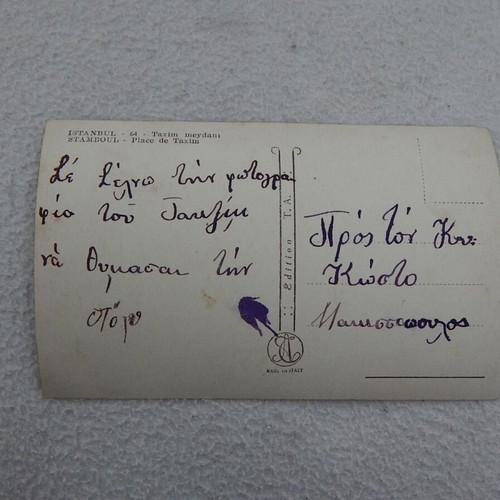 ISTANBUL - 64 - Taxim meydanı
STAMBOUL - Place de Taxim
Σέ Σέλνω τήν φωτογρα
φία τού Ταξίμ
νά θυμασαι τήν
Πόλι
Edition T.A.
MADE IN ITALY
Πρός τόν Κον:
Κώστα